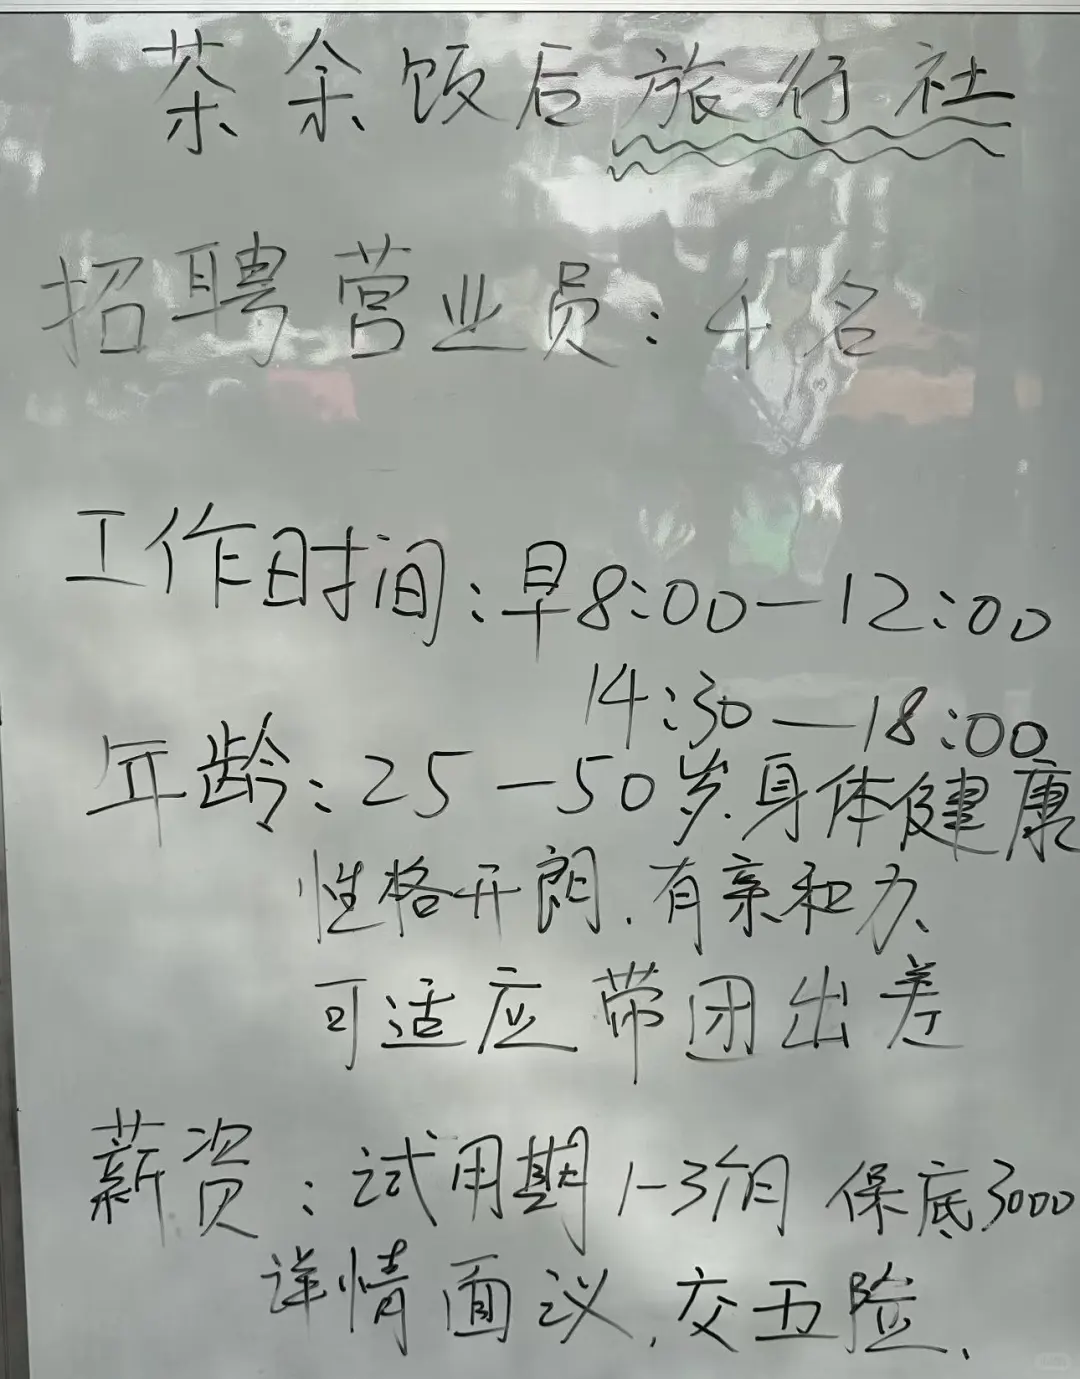 茶余饭后旅行社
招聘营业员：4名
工作时间：早8:00—12:00
14:30—18:00
年龄：25—50岁.身体健康
性格开朗.有亲和力、
可适应带团出差
薪资：试用期1-3个月 保底3000
详情面议.交五险、